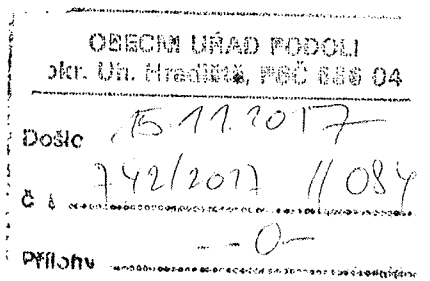 OBECNÍ ÚŘAD PODOLÍ
okr. Uh. Hradiště, PSČ 686 04
Došlo 15.11.2017
Č j. 742/2017 // 084
Přílohy - - 0 -